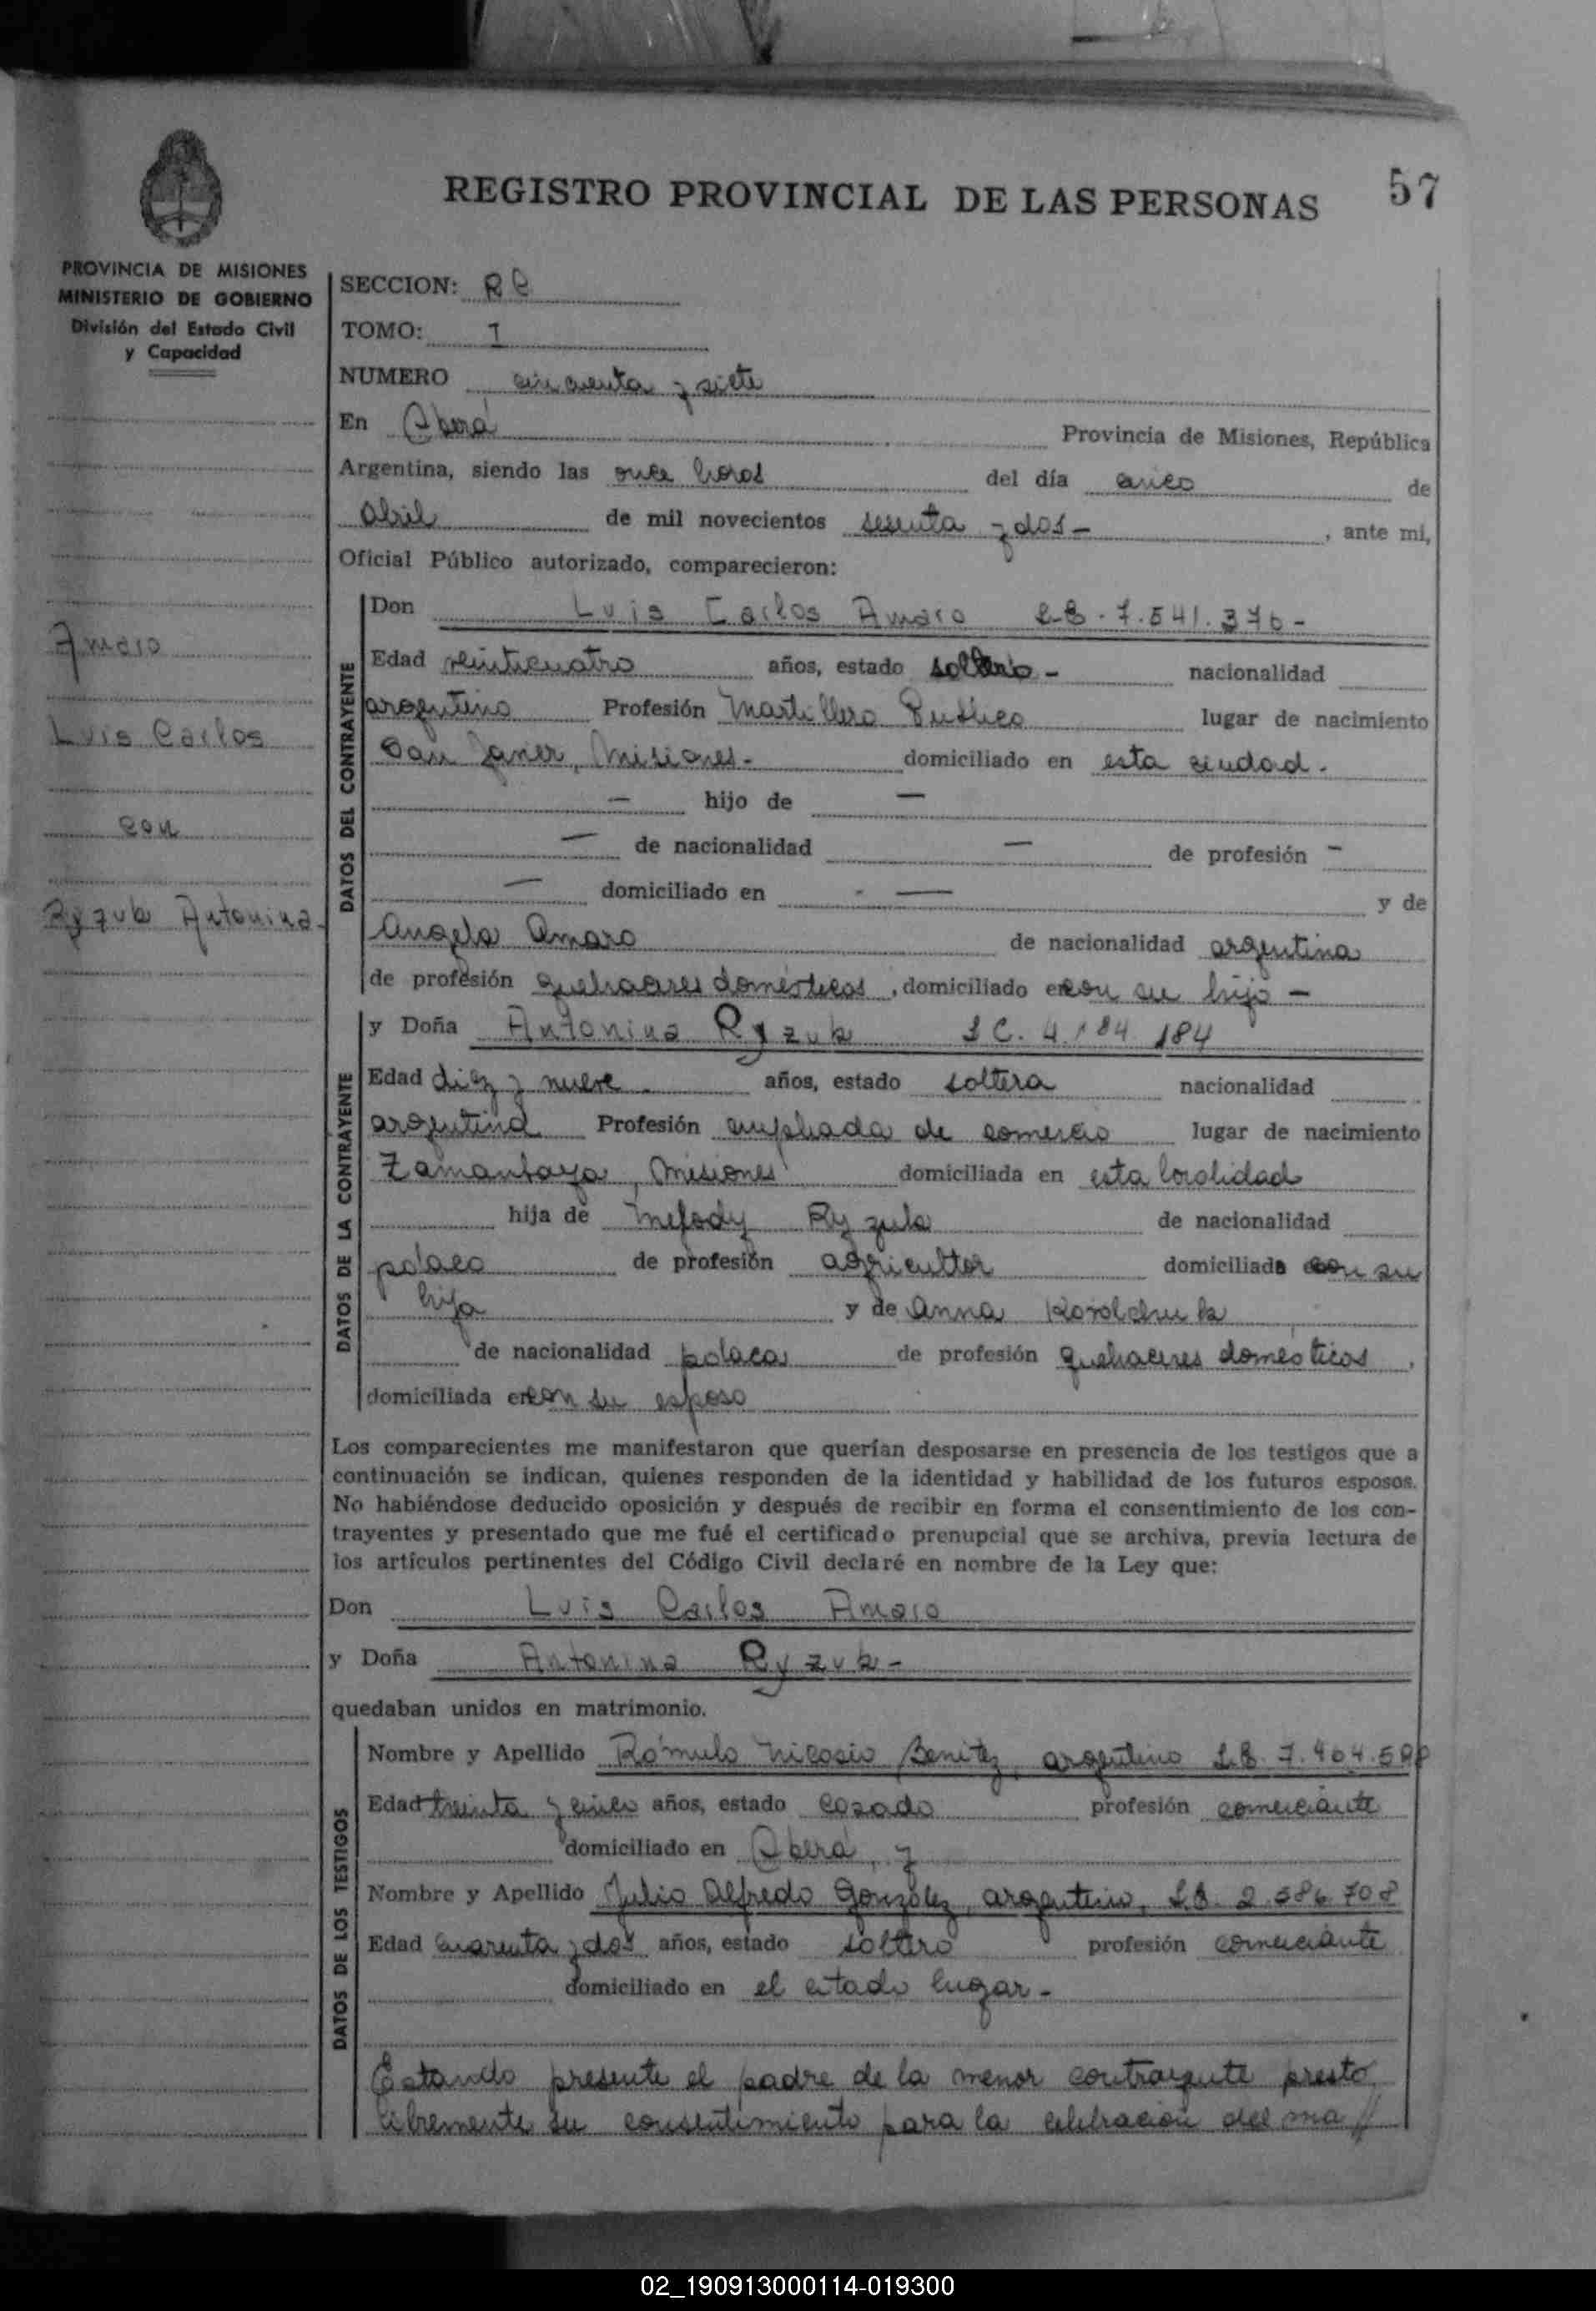 REGISTRO PROVINCIAL DE LAS PERSONAS
57
PROVINCIA DE MISIONES
MINISTERIO DE GOBIERNO
División del Estado Civil
y Capacidad
Amaro
Luis Carlos
con
Ryzuk Antonina
SECCION: RC
TOMO: I
NUMERO cincuenta y siete
En Oberá Provincia de Misiones, República
Argentina, siendo las once horas del día cinco de
abril de mil novecientos sesenta y dos - , ante mi,
Oficial Público autorizado, comparecieron:
DATOS DEL CONTRAYENTE
Don Luis Carlos Amaro L.E. 7.541.376 -
Edad veinticuatro años, estado soltero - nacionalidad
argentino Profesión Martillero Publico lugar de nacimiento
San Javier, Misiones - domiciliado en esta ciudad.
— hijo de —
— de nacionalidad — de profesión —
— domiciliado en — y de
Angela Amaro de nacionalidad argentina
de profesión quehaceres domésticos, domiciliado en con su hijo -
DATOS DE LA CONTRAYENTE
y Doña Antonina Ryzuk L C. 4.184.184
Edad diez y nueve años, estado soltera nacionalidad
argentina Profesión empleada de comercio lugar de nacimiento
Misiones domiciliada en esta localidad
hija de Mefody Ryzuk de nacionalidad
polaco de profesión agricultor domiciliado con su
hija y de Anna Korolchuk
de nacionalidad polaca de profesión quehaceres domésticos,
domiciliada en con su esposo
Los comparecientes me manifestaron que querían desposarse en presencia de los testigos que a
continuación se indican, quienes responden de la identidad y habilidad de los futuros esposos.
No habiéndose deducido oposición y después de recibir en forma el consentimiento de los con-
trayentes y presentado que me fué el certificado prenupcial que se archiva, previa lectura de
los artículos pertinentes del Código Civil declaré en nombre de la Ley que:
Don Luis Carlos Amaro
y Doña Antonina Ryzuk -
quedaban unidos en matrimonio.
DATOS DE LOS TESTIGOS
Nombre y Apellido Rómulo Nicasio Benitez, argentino L.E. 7.404.
Edad treinta y cinco años, estado casado profesión comerciante
domiciliado en Oberá, y
Nombre y Apellido Julio Alfredo González, argentino, L.E. 2.586.708
Edad cuarenta y dos años, estado soltero profesión comerciante
domiciliado en el citado lugar -
Estando presente el padre de la menor contrayente presto
libremente su consentimiento para la celebración del ma //
02_190913000114-019300